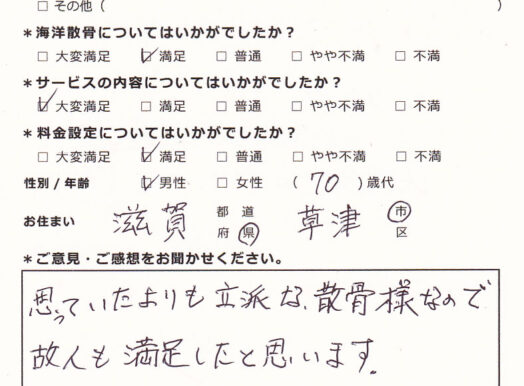 □ その他（ ）
＊海洋散骨についてはいかがでしたか？
□ 大変満足 ☑ 満足 □ 普通 □ やや不満 □ 不満
＊サービスの内容についてはいかがでしたか？
☑ 大変満足 □ 満足 □ 普通 □ やや不満 □ 不満
＊料金設定についてはいかがでしたか？
□ 大変満足 ☑ 満足 □ 普通 □ やや不満 □ 不満
性別 / 年齢 ☑ 男性 □ 女性 （ 70 ）歳代
お住まい 滋賀 都 道 府 県 草津 市 区
＊ご意見・ご感想をお聞かせください。
思っていたよりも立派な、散骨様なので
故人も満足したと思います。